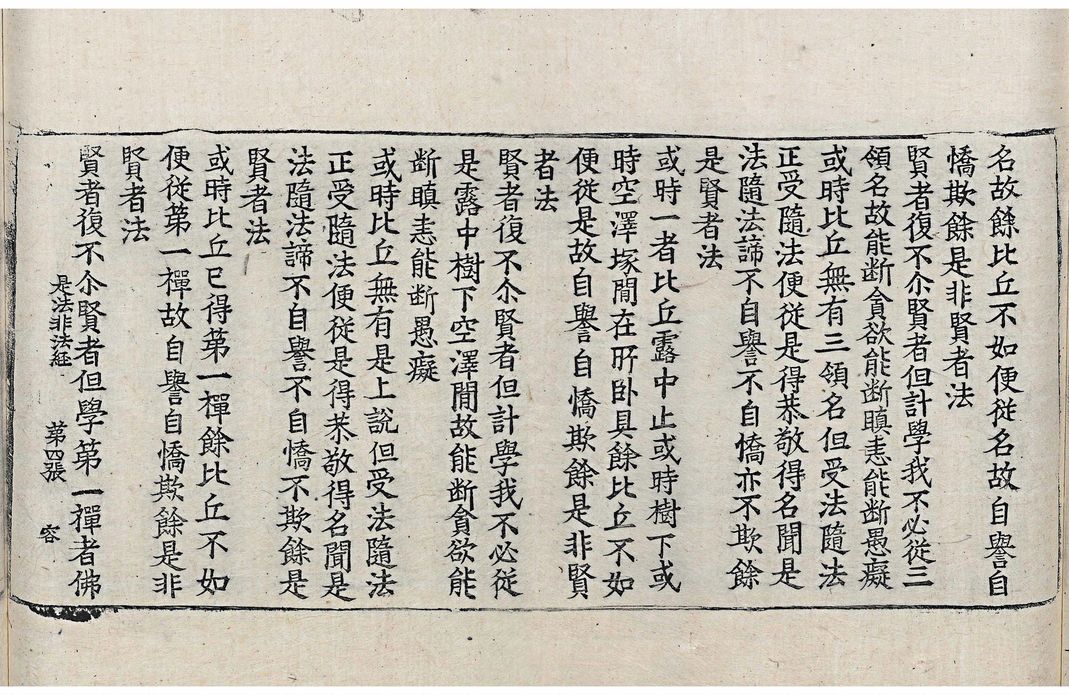 名故餘比丘不如便従名故自譽自
憍欺餘是非賢者法
賢者復不尒賢者但計學我不必従三
領名故能断貪欲能断瞋恚能断愚癡
或時比丘無有三領名但受法隨法
正受隨法便従是得恭敬得名聞是
法隨法諦不自譽不自憍亦不欺餘
是賢者法
或時一者比丘露中止或時樹下或
時空澤塚閒在所卧具餘比丘不如
便従是故自譽自憍欺餘是非賢
者法
賢者復不尒賢者但計學我不必従
是露中樹下空澤閒故能断貪欲能
断瞋恚能断愚癡
或時比丘無有是上說但受法隨法
正受隨法便従是得恭敬得名聞是
法隨法諦不自譽不自憍不欺餘是
賢者法
或時比丘已得第一禪餘比丘不如
便従第一禪故自譽自憍欺餘是非
賢者法
賢者復不尒賢者但學第一禪者佛
是法非法經 第四張 容